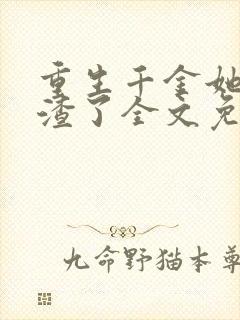 重生千金她
渣了全文免
九命野猫本尊